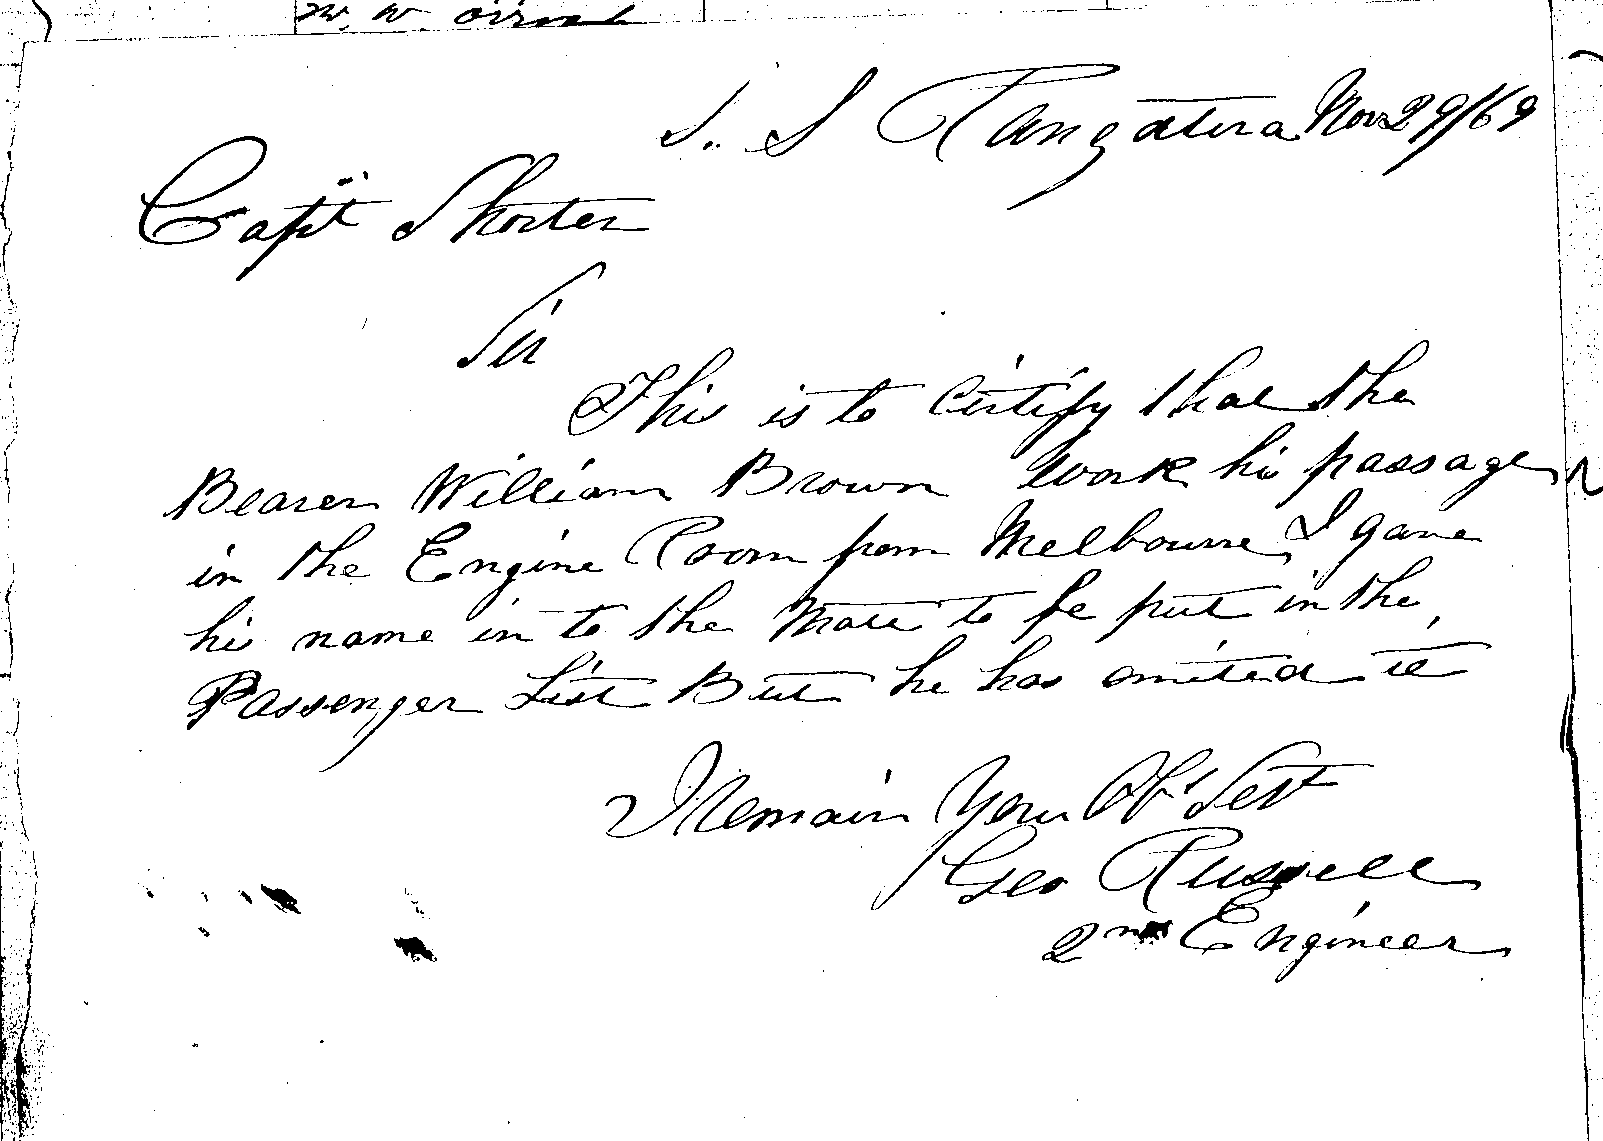 S. S Rangatira Nov 29/69
Capt Shorter
Sir
This is to Certify that the
Bearer William Brown work his passage
in the Engine Room from Melbourne I gave
his name in to the Mate to be put in the
Passenger List But he has omited it
I Remain Your Obt Sevt
Geo Russell
2nd Engineer